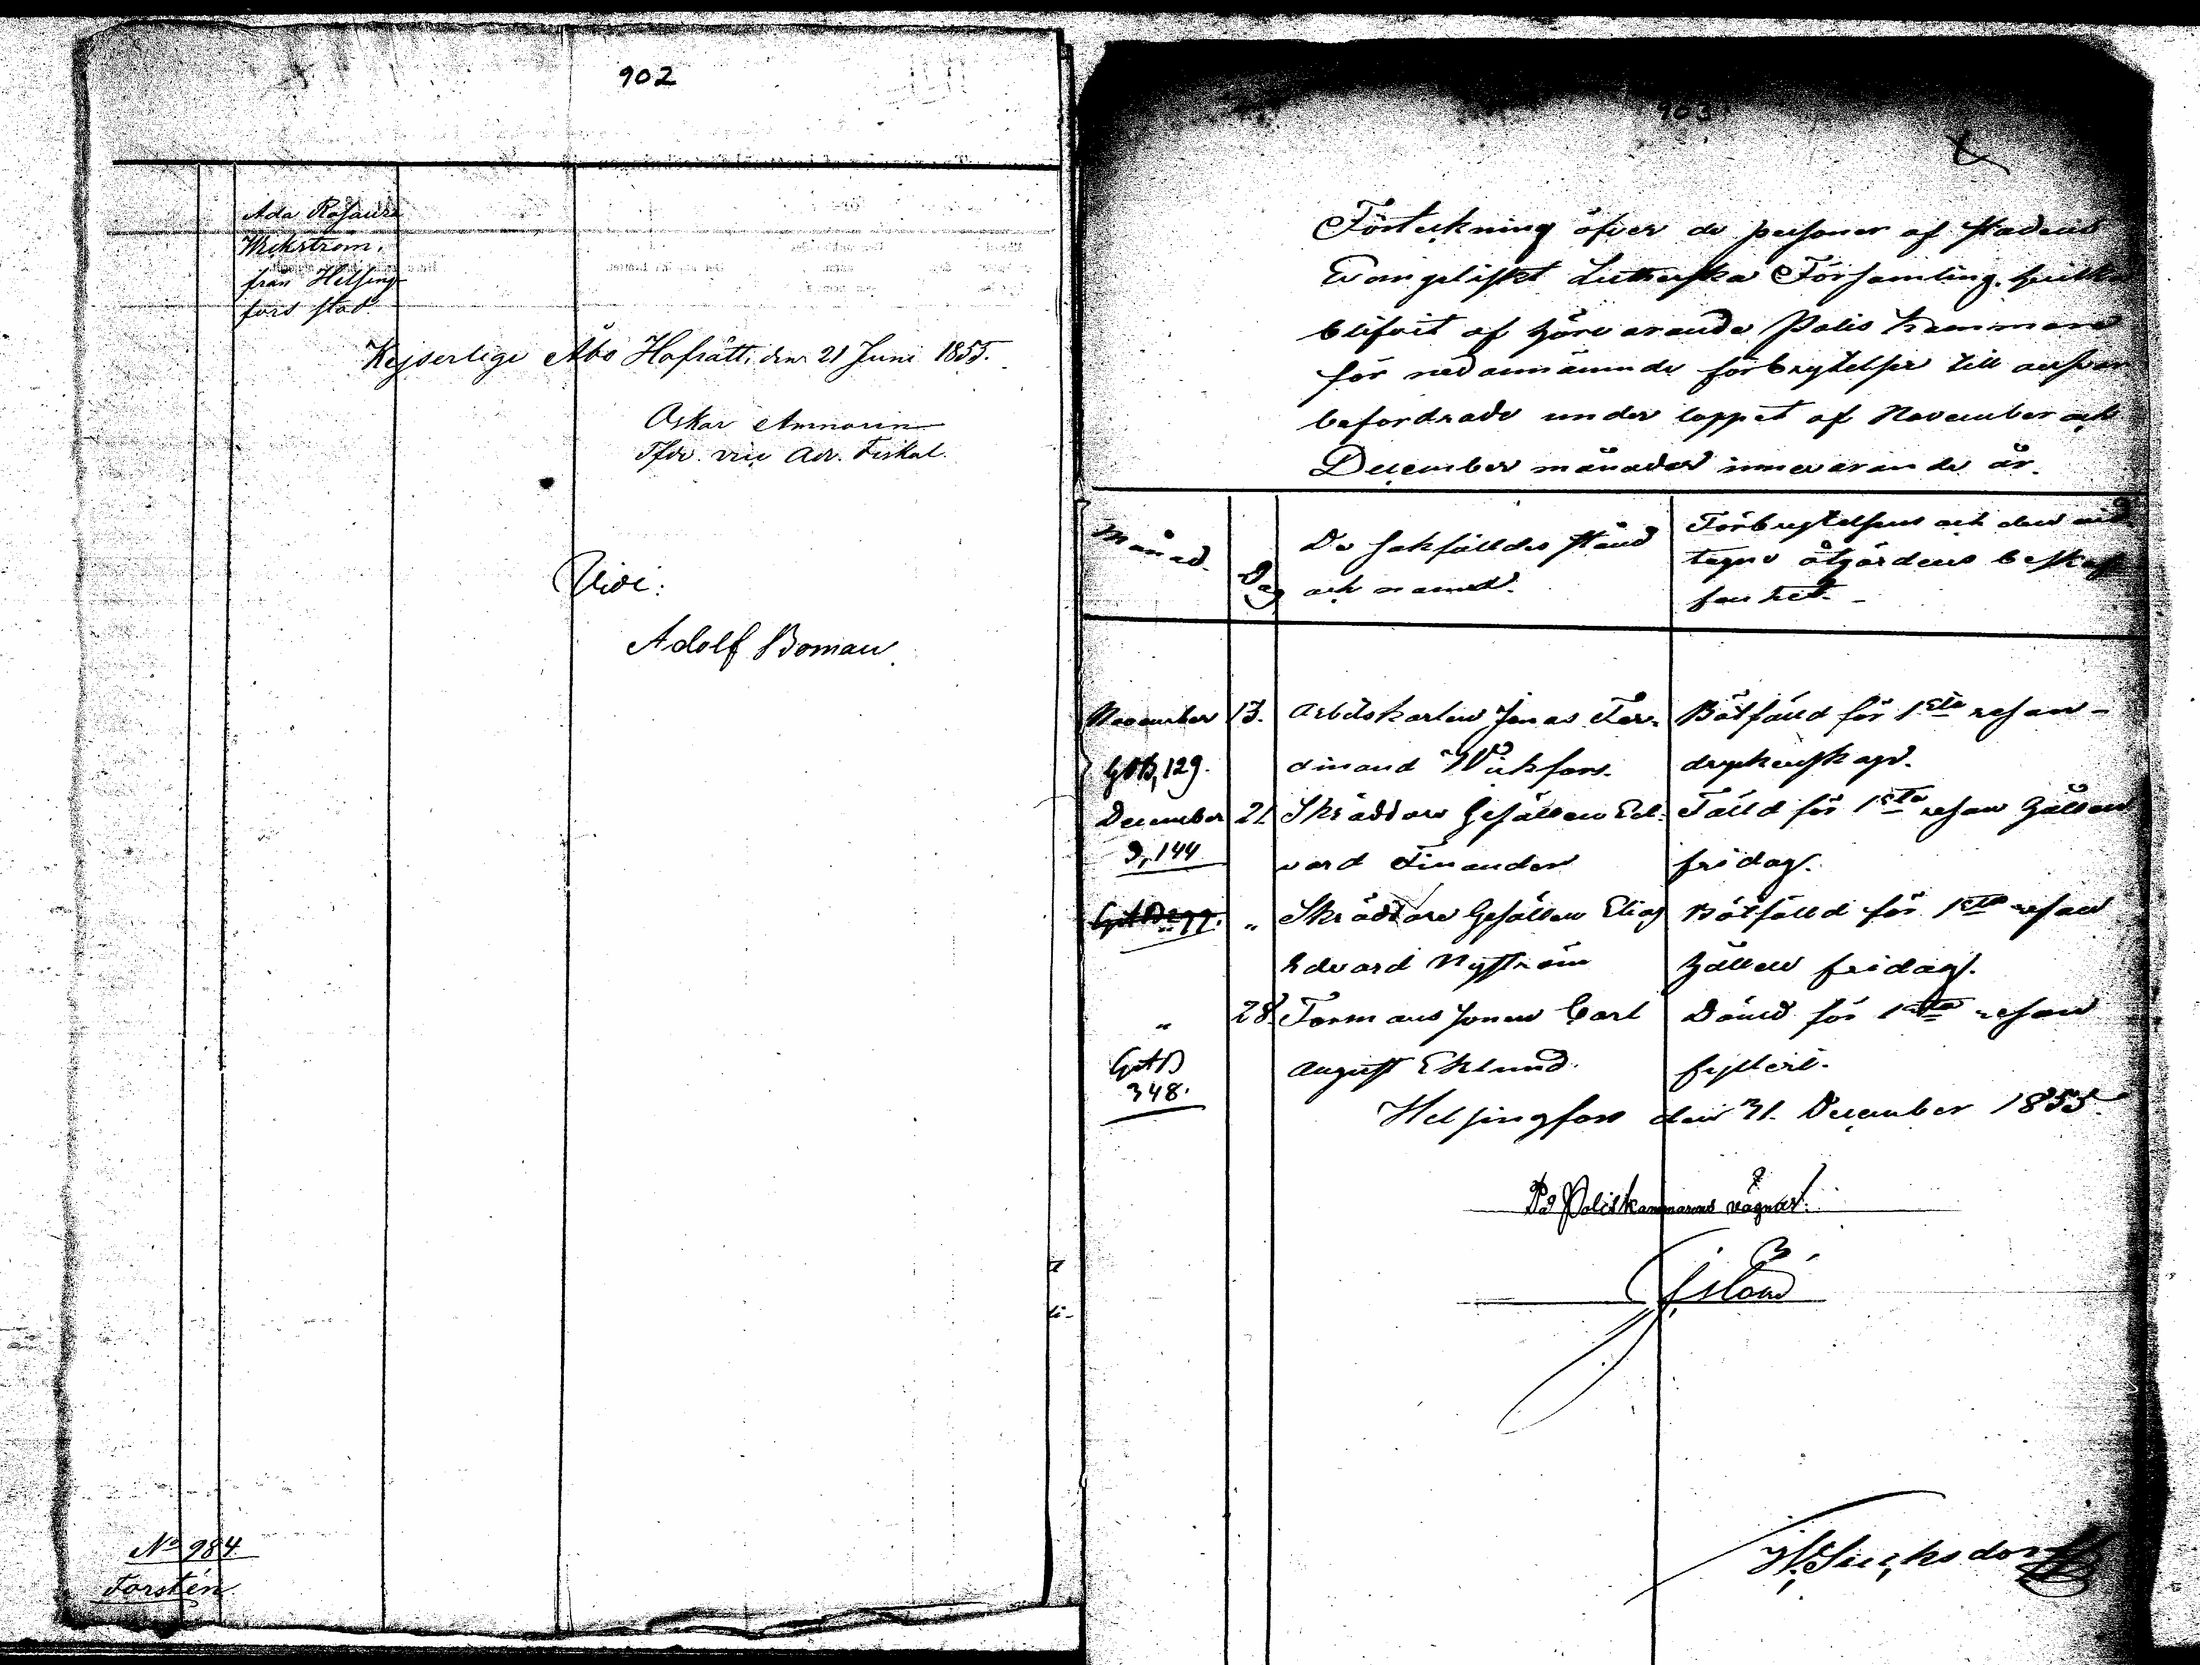 902
Ada Rosaura
Wickström,
från Helsing-
fors stad
Kejserliga Åbo Hofrätt, den 21 Juni 1855.
Oskar
Tfdr. vice Adv. Fiskal.
Vidi:
Adolf Boman
No 984
Forstén
903
Förteckning öfver de personer af stadens
Evangeliskt Lutherska Församling, hvilka
blifvit af härvarande Polis kammare
för nedannämnde förbrytelser till ansvar
befordrade under loppet af November och
December månader innevarande år.
Månad.
Dag
De sakfälldes stånd
och namn.
Förbrytelsens och den vid-
tagne åtgärdens beskaf-
fenhet.
November 13. Arbetskarlen Jonas Fer- Bötfälld för 1sta resan
129. dinand Wickfors. dryckenskap.
December 21 Skräddare Gesällen Ed- Fälld för 1sta resan hållen
144 vard Finander fridag.
" Skräddare Gesällen Elias Bötfälld för 1sta resan
Edvard Nyström hållen fridag.
" 28. Formans sonen Carl Dömd för 1sta resan
348. August Eklund. fylleri.
Helsingfors den 31. December 1855.
På Poliskammarens vägnar: